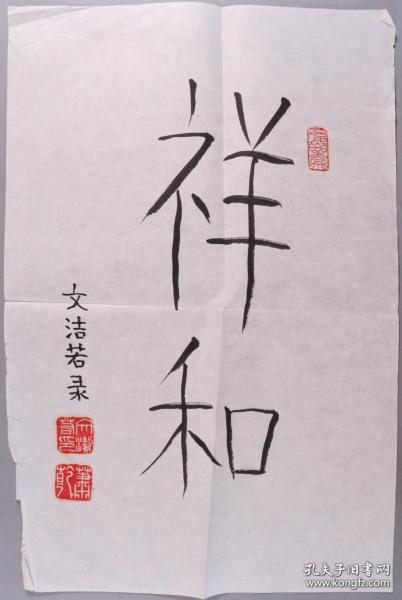 祥和
文洁若录
文潔若印
蕭乾
孔夫子旧书网
www.kongfz.com